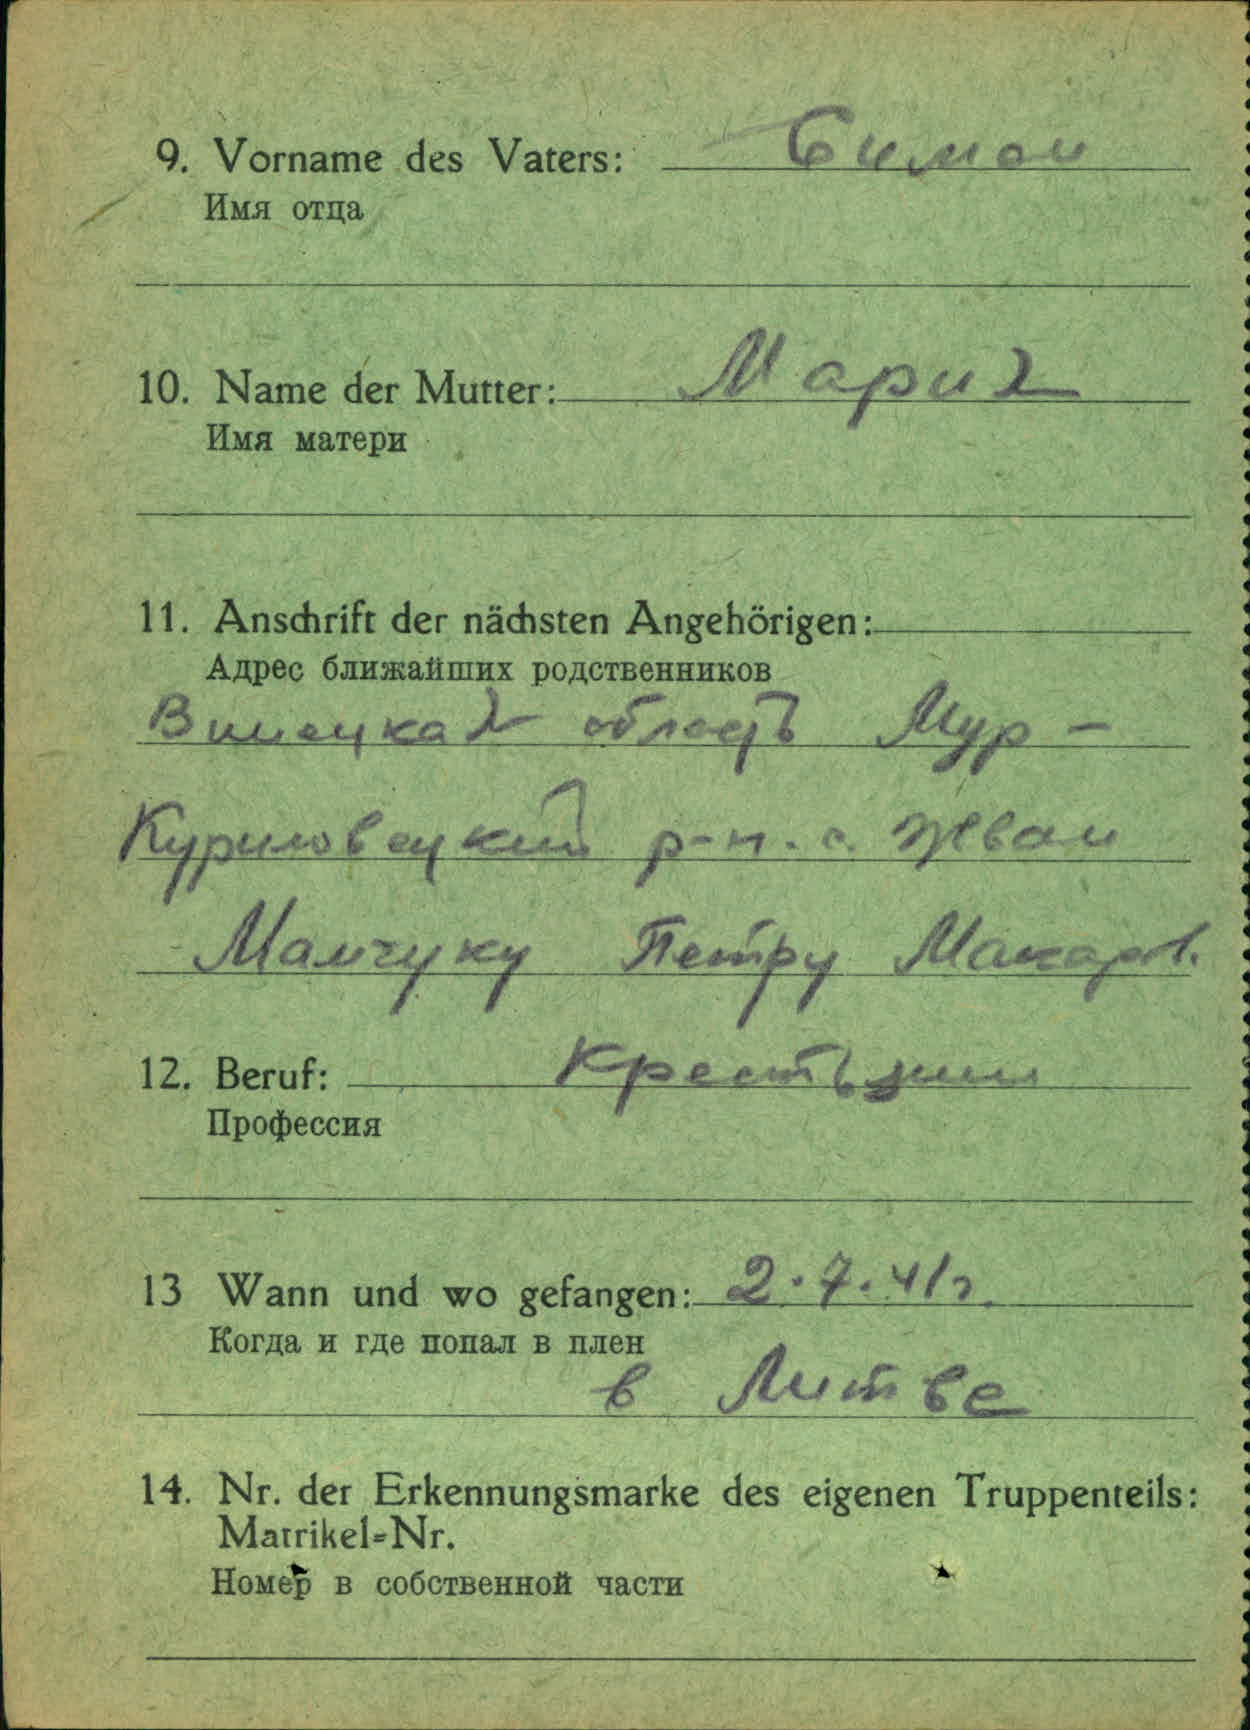 9. Vorname des Vaters: Симон
Имя отца
10. Name der Mutter: Мария
Имя матери
11. Anschrift der nächsten Angehörigen:
Адрес ближайших родственников
Винецкая область Мур-
Куриловецкий р-н. с. Жван
Мамчуку Петру Макаров.
12. Beruf: Крестьянин
Профессия
13 Wann und wo gefangen: 2.7.41г.
Когда и где попал в плен
в Литве
14. Nr. der Erkennungsmarke des eigenen Truppenteils:
Matrikel=Nr.
Номер в собственной части